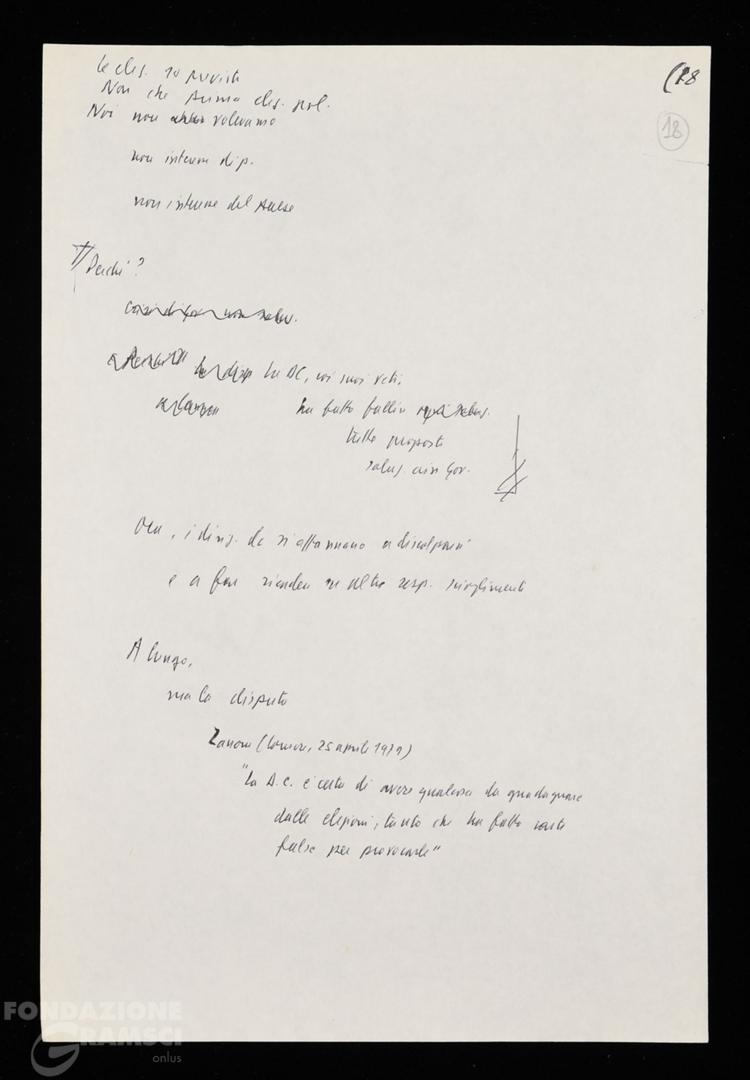 (18
18
Le elez.
Non che prima elez. pol.
Noi non volevamo
non interesse di p.
non interesse del Paese
Perché?
la DC, coi suoi veti,
ha fatto fallire
tutte proposte
soluz. crisi gov.
Ora, i dirig. dc si affannano a discolparsi
e a far ricadere su altri resp. scioglimento
A lungo,
ma la disputa
Zanone (Corriere, 25 aprile 1979)
"La D.C. è certa di avere qualcosa da guadagnare
dalle elezioni, tanto che ha fatto carte
false per provocarle"
FONDAZIONE
GRAMSCI
onlus